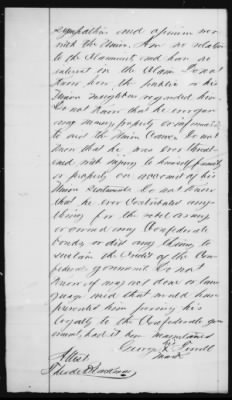 sympathies and opinion were
with the Union. Am no relation
to the Claimant and have no
interest in the Claim. Do not
know how the public or his
Union neighbors regarded him.
Do not know that he ever gave
any money property or information
to aid the Union Cause. Do not
know that he was ever threat-
ened with injury to himself family
or property on account of his
Union Sentiments. Do not know
that he ever Contributed any-
thing for the rebel army
or owned any Confederate
bonds or did any thing to
sustain the Credit of the Con-
federate government. Do not
know of any act done or lan-
guage used that would have
prevented him proving his
loyalty to the Confederate gov-
ernment, had it been maintained
his
George X
mark
Attest